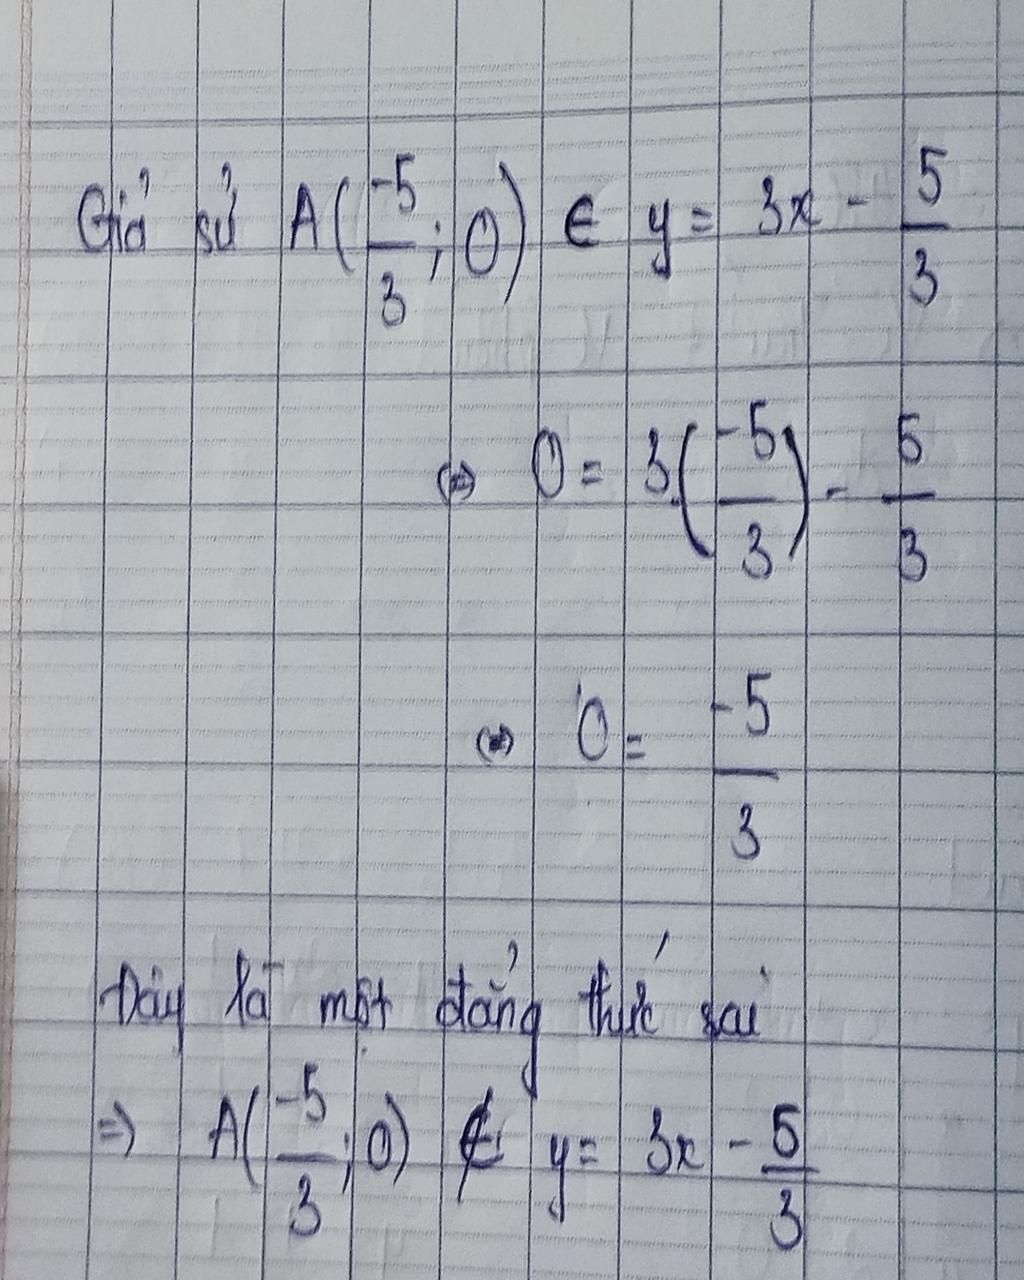 Giả sử A(-5/3; 0) ∈ y = 3x - 5/3
⇔ 0 = 3.(-5/3) - 5/3
⇔ 0 = -5/3
Đây là một đẳng thức sai
=> A(-5/3; 0) ∉ y = 3x - 5/3